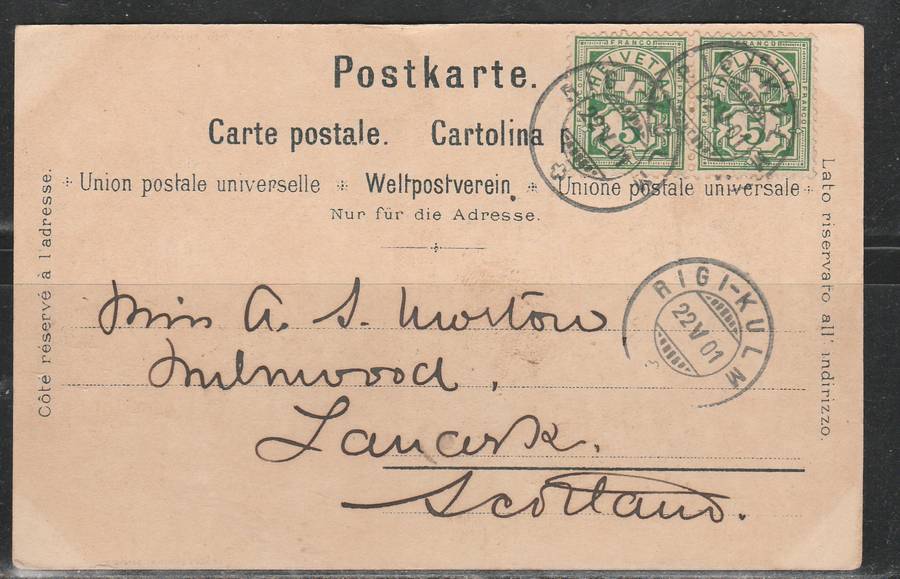 Postkarte.
Carte postale. Cartolina p
Union postale universelle * Weltpostverein * Unione postale universale
Nur für die Adresse.
Côté réservé à l'adresse.
Lato riservato all' indirizzo.
FRANCO
HELVETIA
5
FRANCO
HELVETIA
5
FRANCO
22 V 01
RIGI-KULM
22 V 01
Miss A. S. Morton
Lanark.
Scotland.